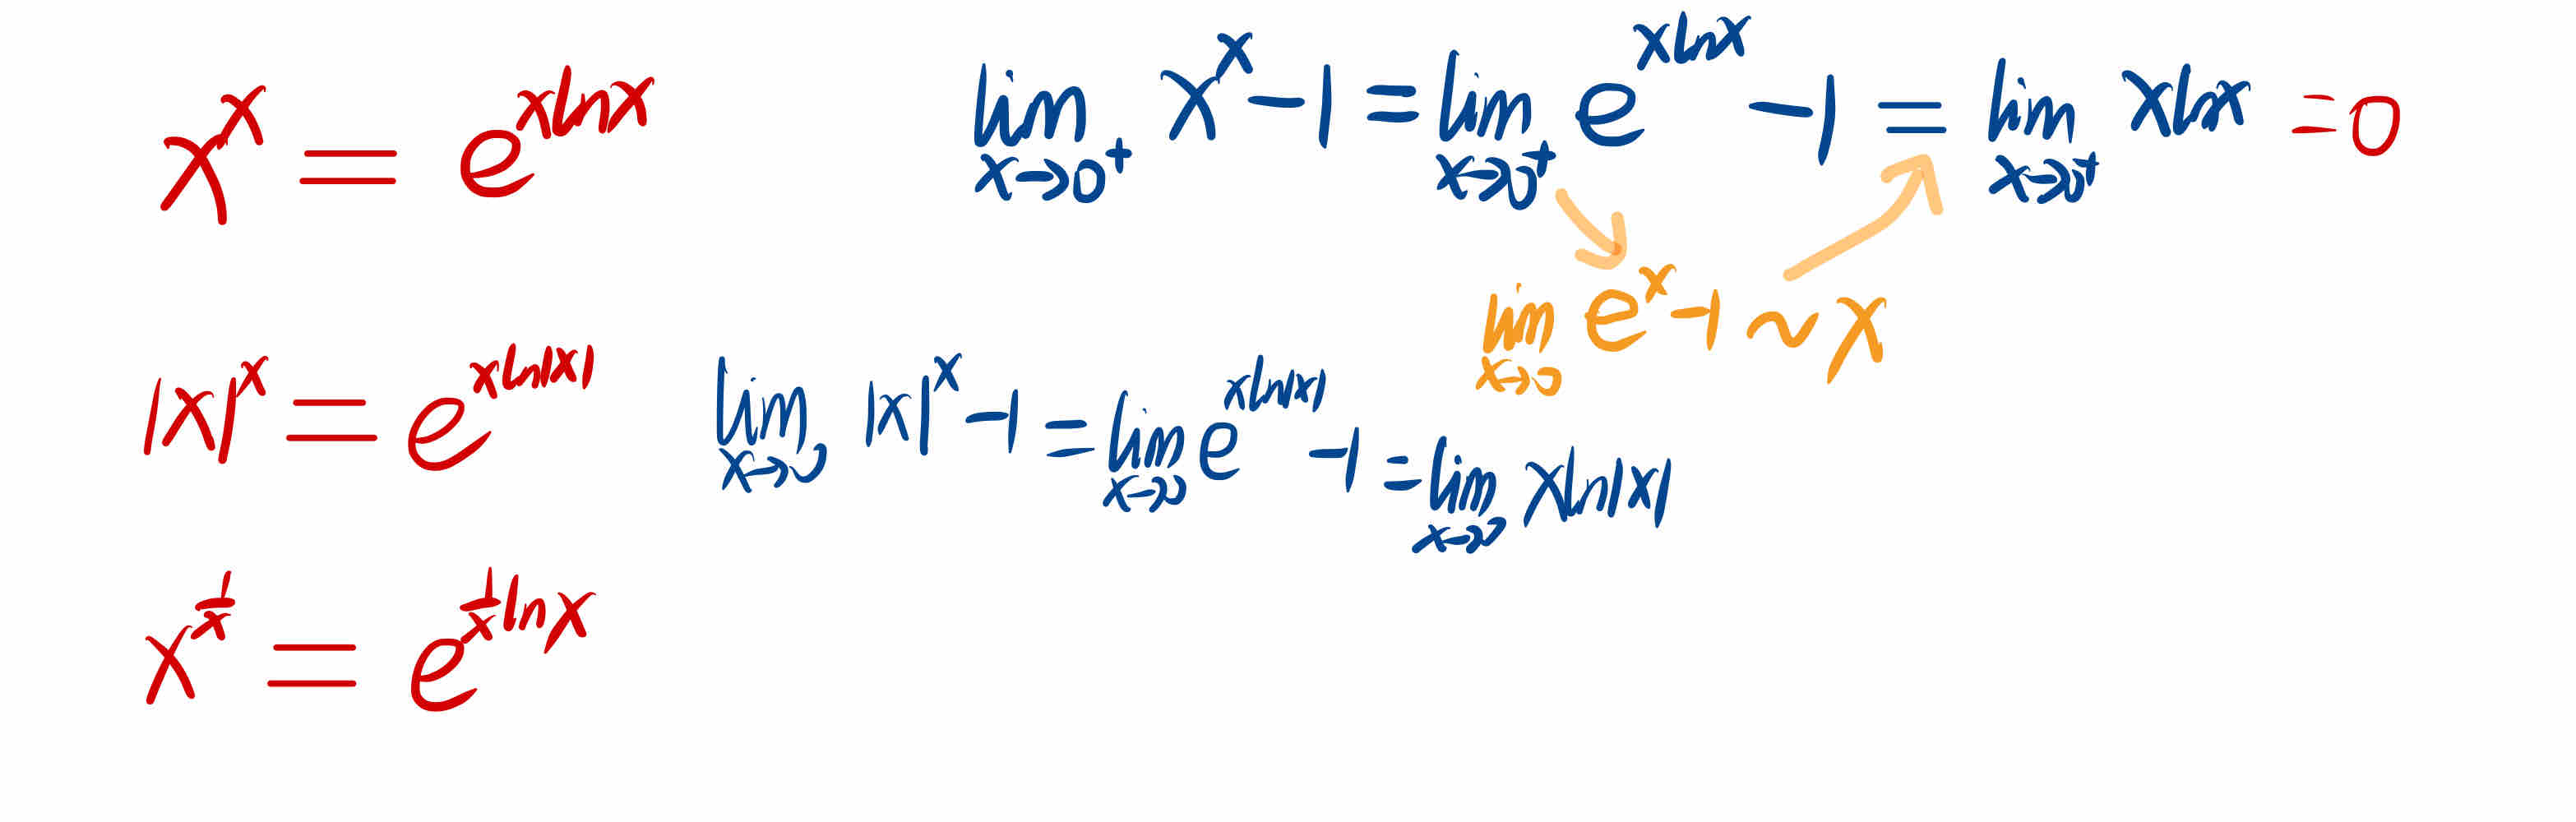 x^x = e^{xlnx}
lim_{x→0^+} x^x - 1 = lim_{x→0^+} e^{xlnx} - 1 = lim_{x→0^+} xlnx = 0
lim_{x→0} e^x - 1 ~ x
|x|^x = e^{xln|x|}
lim_{x→0} |x|^x - 1 = lim_{x→0} e^{xln|x|} - 1 = lim_{x→0} xln|x|
x^{1/x} = e^{1/x lnx}